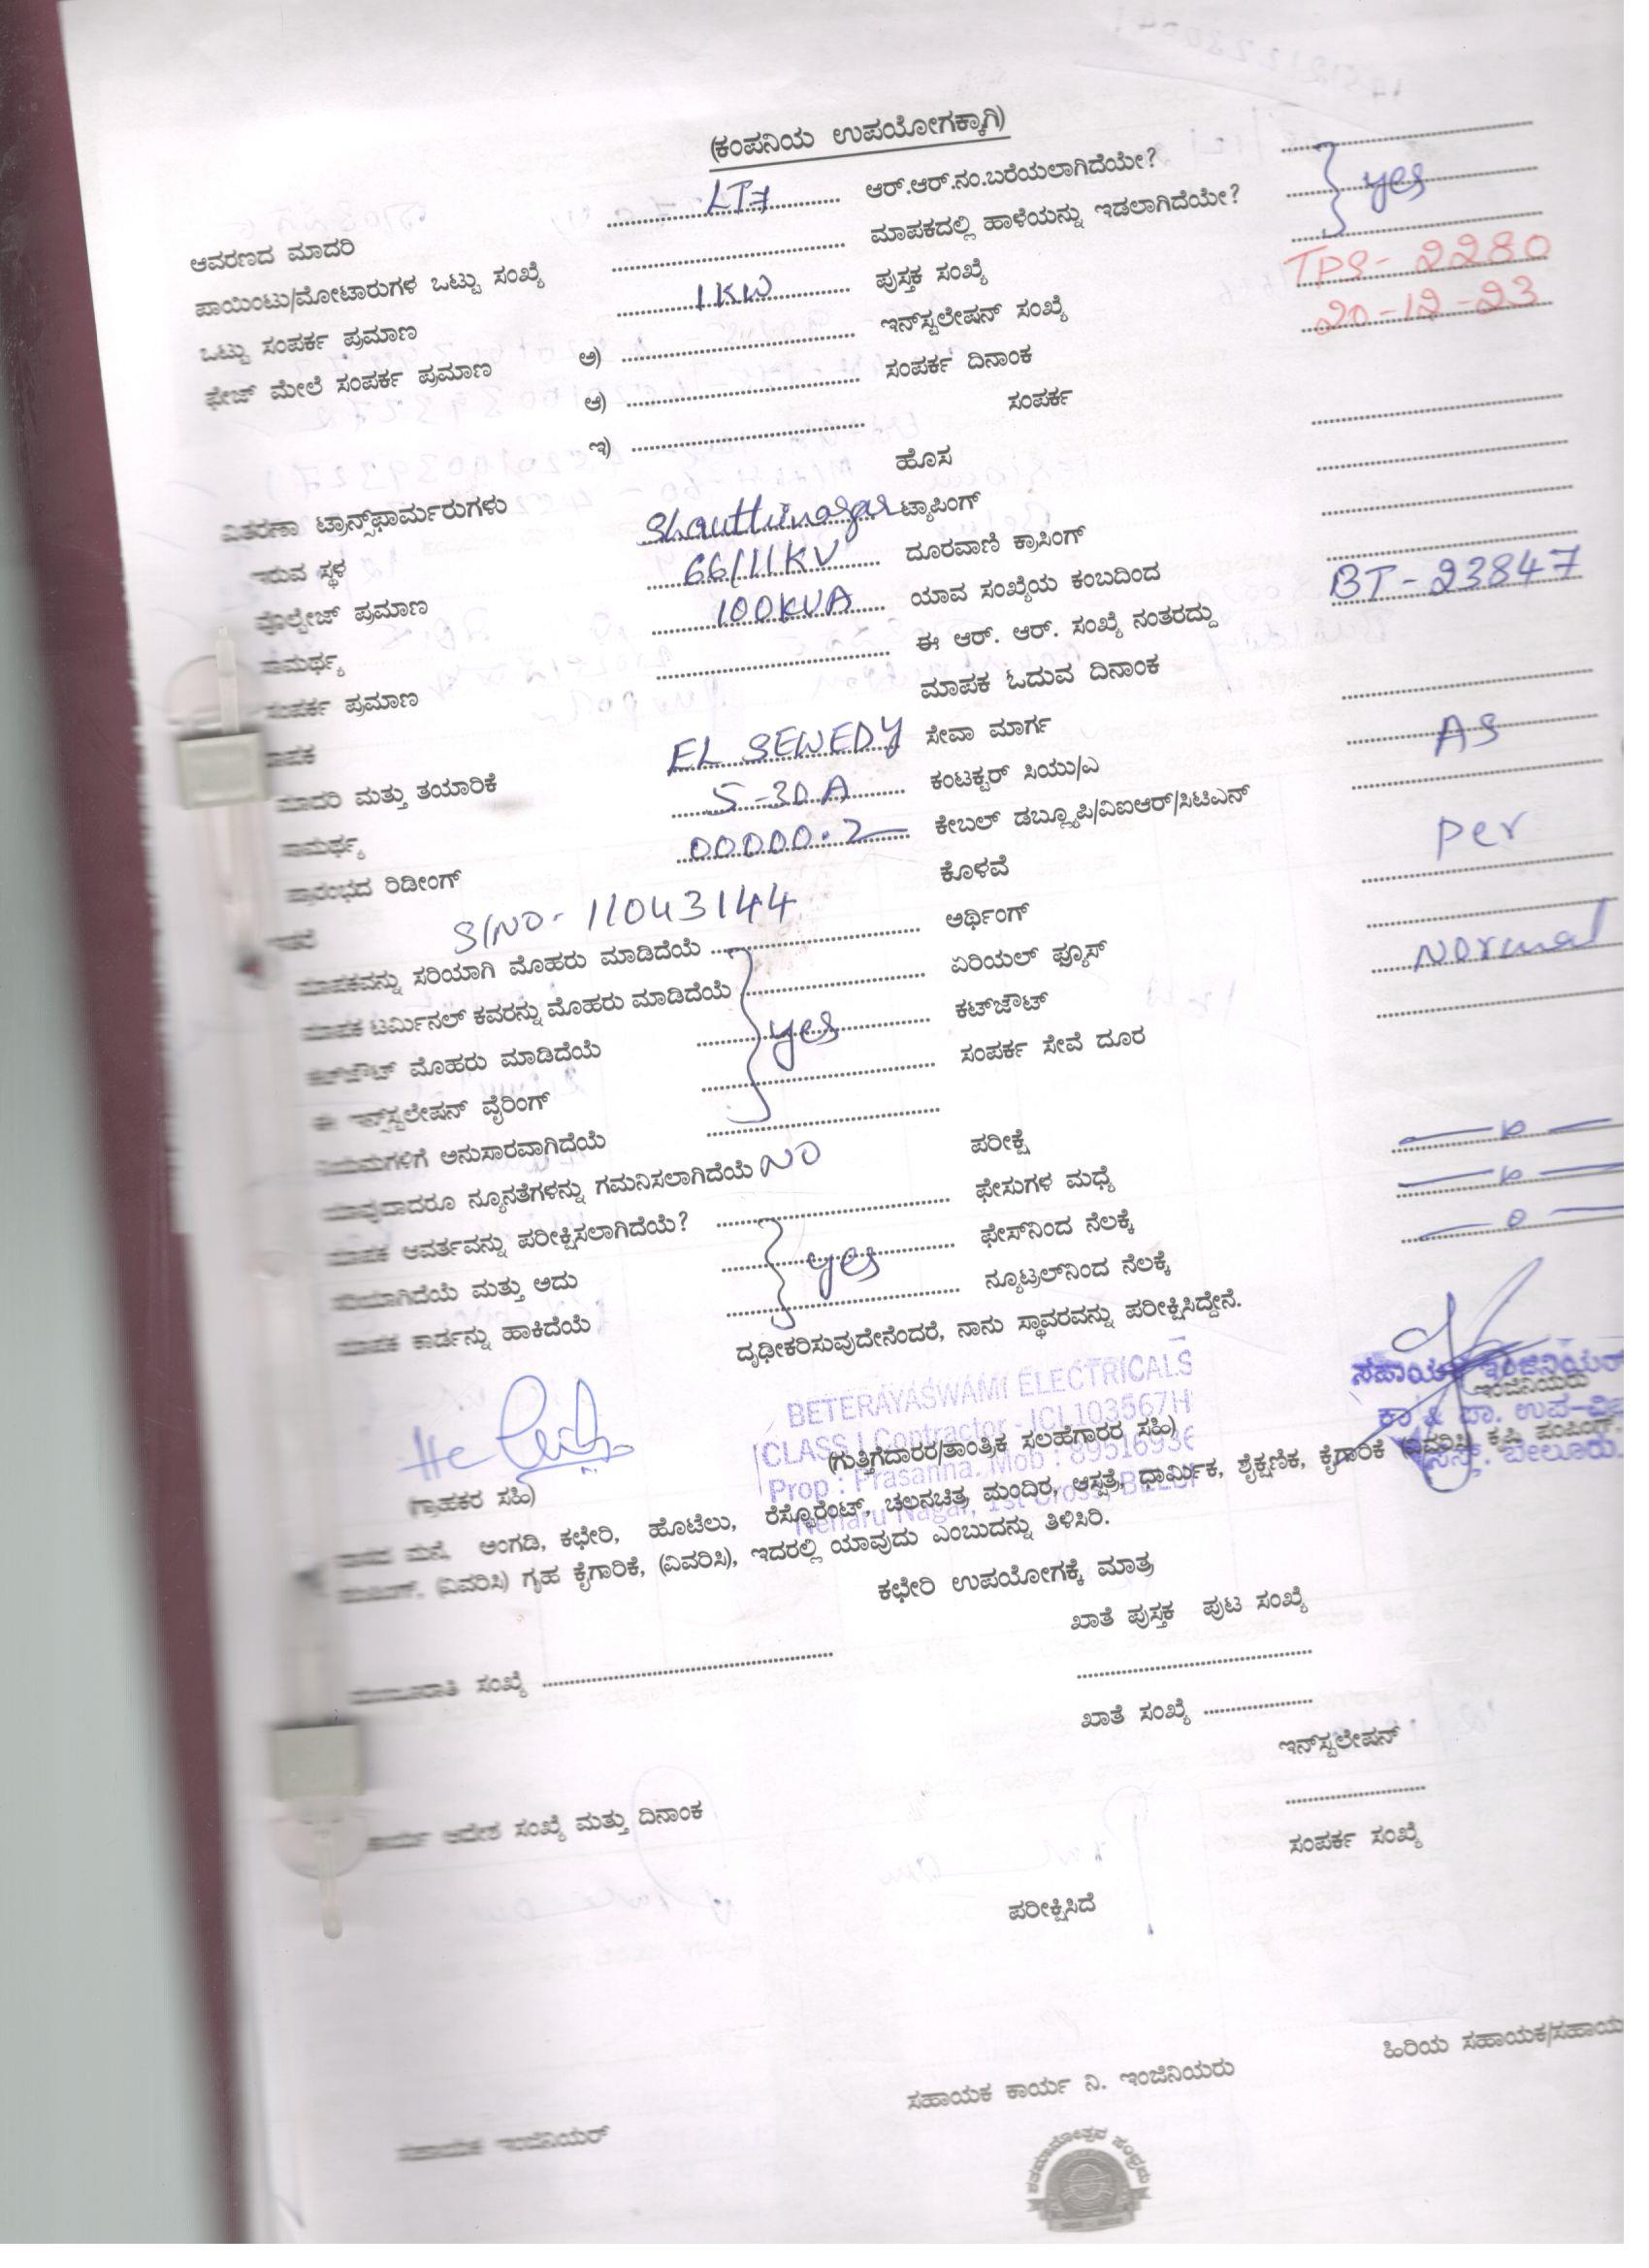 (ಕಂಪನಿಯ ಉಪಯೋಗಕ್ಕಾಗಿ)
ಆವರಣದ ಮಾದರಿ LT7 ಆರ್.ಆರ್.ನಂ.ಬರೆಯಲಾಗಿದೆಯೇ?
ಪಾಯಿಂಟು/ಮೋಟಾರುಗಳ ಒಟ್ಟು ಸಂಖ್ಯೆ ಮಾಪಕದಲ್ಲಿ ಹಾಳೆಯನ್ನು ಇಡಲಾಗಿದೆಯೇ? yes
ಒಟ್ಟು ಸಂಪರ್ಕ ಪ್ರಮಾಣ 1KW ಪುಸ್ತಕ ಸಂಖ್ಯೆ
ಫೇಜ್ ಮೇಲೆ ಸಂಪರ್ಕ ಪ್ರಮಾಣ ಅ) ಇನ್‌ಸ್ಟಲೇಷನ್ ಸಂಖ್ಯೆ TPS-2280
ಆ) ಸಂಪರ್ಕ ದಿನಾಂಕ 20-12-23
ಇ) ಸಂಪರ್ಕ
ಹೊಸ
ವಿತರಣಾ ಟ್ರಾನ್ಸ್‌ಫಾರ್ಮರುಗಳು
ಇರುವ ಸ್ಥಳ Shanthinagar ಟ್ಯಾಪಿಂಗ್
ವೊಲ್ಟೇಜ್ ಪ್ರಮಾಣ 66/11KV ದೂರವಾಣಿ ಕ್ರಾಸಿಂಗ್
ಸಾಮರ್ಥ್ಯ 100KVA ಯಾವ ಸಂಖ್ಯೆಯ ಕಂಬದಿಂದ
ಸಂಪರ್ಕ ಪ್ರಮಾಣ ಈ ಆರ್. ಆರ್. ಸಂಖ್ಯೆ ನಂತರದ್ದು BT-23847
ಮಾಪಕ ಮಾಪಕ ಓದುವ ದಿನಾಂಕ
ಮಾದರಿ ಮತ್ತು ತಯಾರಿಕೆ EL SEWEDY ಸೇವಾ ಮಾರ್ಗ
ಸಾಮರ್ಥ್ಯ 5-30A ಕಂಟಕ್ಟರ್ ಸಿಯು/ಎ AS
ಪ್ರಾರಂಭದ ರಿಡೀಂಗ್ 00000.2 ಕೇಬಲ್ ಡಬ್ಲ್ಯೂಪಿ/ವಿಐಆರ್/ಸಿಟಿಎನ್
S/NO- 11043144 ಕೊಳವೆ Per
ಮಾಪಕವನ್ನು ಸರಿಯಾಗಿ ಮೊಹರು ಮಾಡಿದೆಯೆ ಅರ್ಥಿಂಗ್
ಮಾಪಕ ಟರ್ಮಿನಲ್ ಕವರನ್ನು ಮೊಹರು ಮಾಡಿದೆಯೆ ಏರಿಯಲ್ ಫ್ಯೂಸ್ Normal
ಕಟ್‌ಔಟ್ ಮೊಹರು ಮಾಡಿದೆಯೆ yes ಕಟ್‌ಔಟ್
ಈ ಇನ್ಸ್‌ಸ್ಟಲೇಷನ್ ವೈರಿಂಗ್ ಸಂಪರ್ಕ ಸೇವೆ ದೂರ
ನಿಯಮಗಳಿಗೆ ಅನುಸಾರವಾಗಿದೆಯೆ
ಯಾವುದಾದರೂ ನ್ಯೂನತೆಗಳನ್ನು ಗಮನಿಸಲಾಗಿದೆಯೆ NO ಪರೀಕ್ಷೆ
ಮಾಪಕ ಆವರ್ತವನ್ನು ಪರೀಕ್ಷಿಸಲಾಗಿದೆಯೆ? ಫೇಸುಗಳ ಮಧ್ಯೆ
ಸರಿಯಾಗಿದೆಯೆ ಮತ್ತು ಅದು yes ಫೇಸ್‌ನಿಂದ ನೆಲಕ್ಕೆ
ಮಾಪಕ ಕಾರ್ಡನ್ನು ಹಾಕಿದೆಯೆ ನ್ಯೂಟ್ರಲ್‌ನಿಂದ ನೆಲಕ್ಕೆ 0
ದೃಢೀಕರಿಸುವುದೇನೆಂದರೆ, ನಾನು ಸ್ಥಾವರವನ್ನು ಪರೀಕ್ಷಿಸಿದ್ದೇನೆ.
BETERAYASWAMI ELECTRICALS
CLASS I Contractor - ICL103567H
Prop : Prasanna. Mob : 8951693
Neharu Nagar, 1st Cross, BELUR
ಸಹಾಯಕ ಇಂಜಿನಿಯರ್
ಇಂಜಿನಿಯರು
ಕಾ & ಪಾ. ಉಪ-ವಿ
ಬೇಲೂರು.
(ಗ್ರಾಹಕರ ಸಹಿ) (ಗುತ್ತಿಗೆದಾರರ/ತಾಂತ್ರಿಕ ಸಲಹೆಗಾರರ ಸಹಿ)
ವಾಸದ ಮನೆ, ಅಂಗಡಿ, ಕಛೇರಿ, ಹೊಟೇಲು, ರೆಸ್ಟೊರೆಂಟ್, ಚಲನಚಿತ್ರ ಮಂದಿರ, ಆಸ್ಪತ್ರೆ, ಧಾರ್ಮಿಕ, ಶೈಕ್ಷಣಿಕ, ಕೈಗಾರಿಕೆ (ವಿವರಿಸಿ) ಕೃಷಿ ಪಂಪಿಂಗ್,
(ವಿವರಿಸಿ) ಗೃಹ ಕೈಗಾರಿಕೆ, (ವಿವರಿಸಿ), ಇದರಲ್ಲಿ ಯಾವುದು ಎಂಬುದನ್ನು ತಿಳಿಸಿರಿ.
ಕಛೇರಿ ಉಪಯೋಗಕ್ಕೆ ಮಾತ್ರ
ಖಾತೆ ಪುಸ್ತಕ ಪುಟ ಸಂಖ್ಯೆ
ಮಂಜೂರಾತಿ ಸಂಖ್ಯೆ
ಖಾತೆ ಸಂಖ್ಯೆ
ಇನ್‌ಸ್ಟಲೇಷನ್
ಕಾರ್ಯ ಆದೇಶ ಸಂಖ್ಯೆ ಮತ್ತು ದಿನಾಂಕ
ಸಂಪರ್ಕ ಸಂಖ್ಯೆ
ಪರೀಕ್ಷಿಸಿದೆ
ಸಹಾಯಕ ಇಂಜಿನಿಯರ್ ಸಹಾಯಕ ಕಾರ್ಯ ನಿ. ಇಂಜಿನಿಯರು ಹಿರಿಯ ಸಹಾಯಕ/ಸಹಾಯ